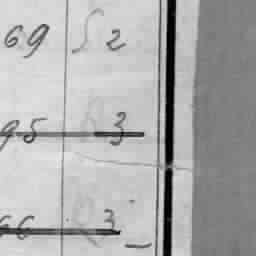 69 52
95 3
66 3